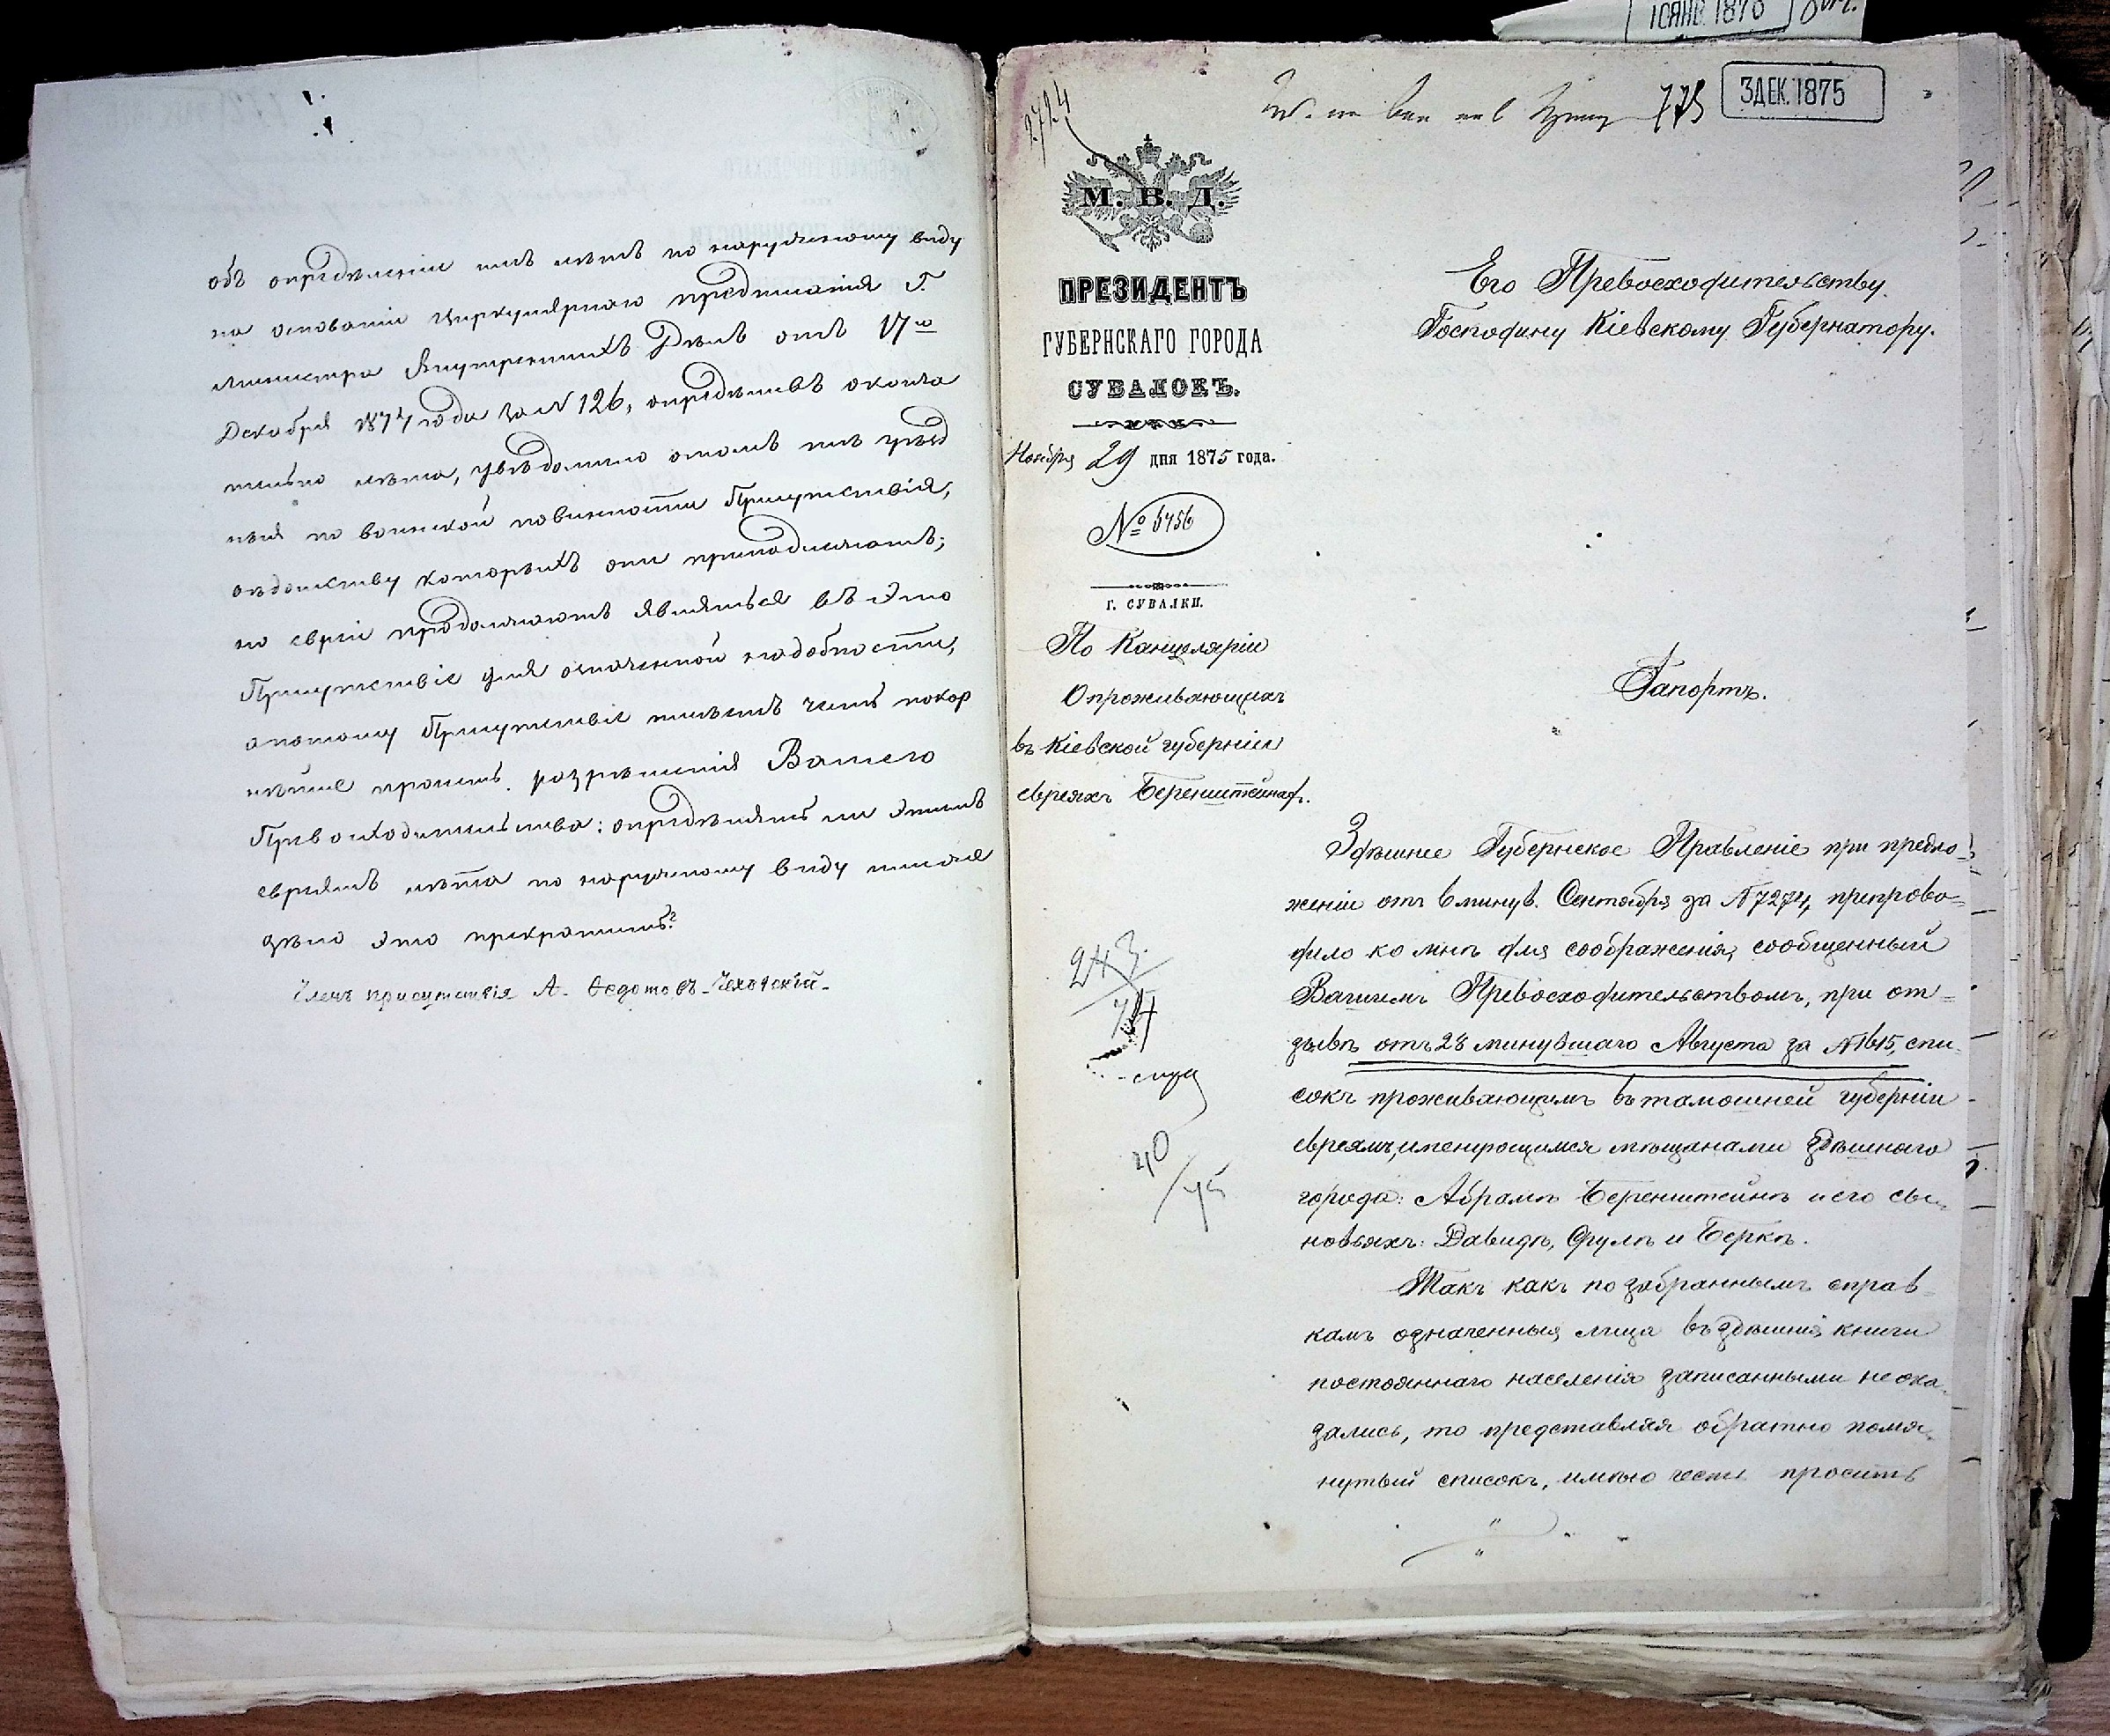 объ опредѣленіи имъ лѣтъ по наружному виду
на основаніи Циркулярнаго предписанія Г.
Министра Внутреннихъ Дѣлъ отъ 17го
Декабря 1874 года за № 126, опредѣливъ оконча
тельно лѣта, увѣдомило отомъ тѣ уѣзд
ныя по воинской повинности Присутствія,
вѣдомству которыхъ они принадлежатъ;
но евреи продолжаютъ являться въ это
Присутствіе для означенной надобности,
а потому Присутствіе имѣетъ честь покор
нѣйше просить разрѣшенія Вашего
Превосходительства: опредѣлять ли этимъ
евреямъ лѣта по наружному виду или же
дѣло это прекратить?
Членъ присутствія А. Ѳедотовъ-Чеховскій.
10 ЯНВ. 1876
3 ДЕК. 1875
775
2724
М. В. Д.
ПРЕЗИДЕНТЪ
ГУБЕРНСКАГО ГОРОДА
СУВАЛОКЪ.
Ноября 29 дня 1875 года.
№ 5756
Г. СУВАЛКИ.
По Канцеляріи
О проживающихъ
въ Кіевской губерніи
евреяхъ Беренштейнахъ.
Его Превосходительству
Господину Кіевскому Губернатору.
Рапортъ.
Здѣшнее Губернское Правленіе при предло-
женіи отъ 6 минув. Сентября за № 7274, препрово-
дило ко мнѣ для соображенія, сообщенный
Вашимъ Превосходительствомъ, при от-
зывѣ отъ 28 минувшаго Августа за № 1615, спи-
сокъ проживающимъ въ тамошней губерніи
евреямъ, именующимся мѣщанами здѣшняго
города: Абрамѣ Беренштейнѣ и его сы-
новьяхъ: Давидѣ, Срулѣ и Беркѣ.
Такъ какъ по забраннымъ справ-
камъ означенныя лица въ здѣшнія книги
постояннаго населенія записанными не ока-
зались, то представляя обратно помя-
нутый списокъ, имѣю честь просить
243
74
40
/75